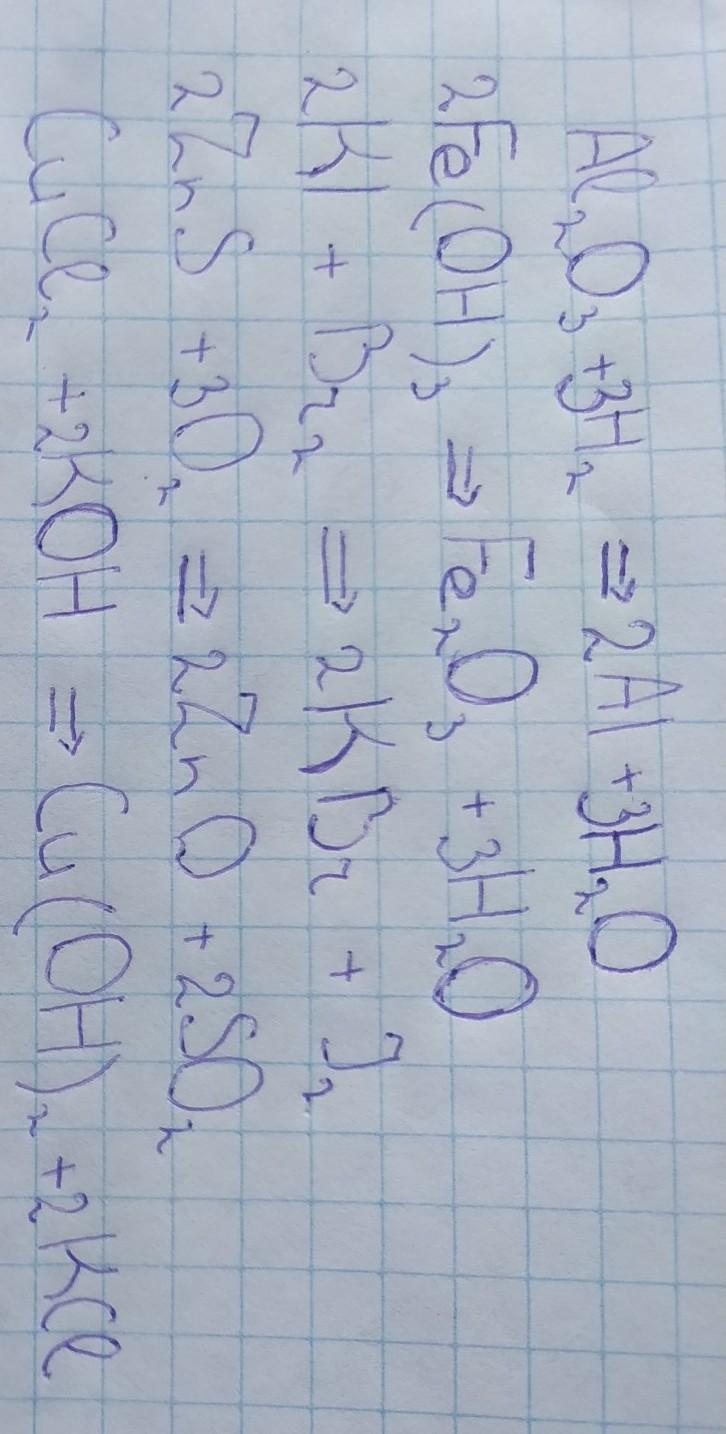 Al₂O₃ +3H₂ ⇒ 2Al +3H₂O
2Fe(OH)₃ ⇒ Fe₂O₃ +3H₂O
2KI + Br₂ ⇒ 2KBr + J₂
2ZnS +3O₂ ⇒ 2ZnO +2SO₂
CuCl₂ +2KOH ⇒ Cu(OH)₂ +2KCl